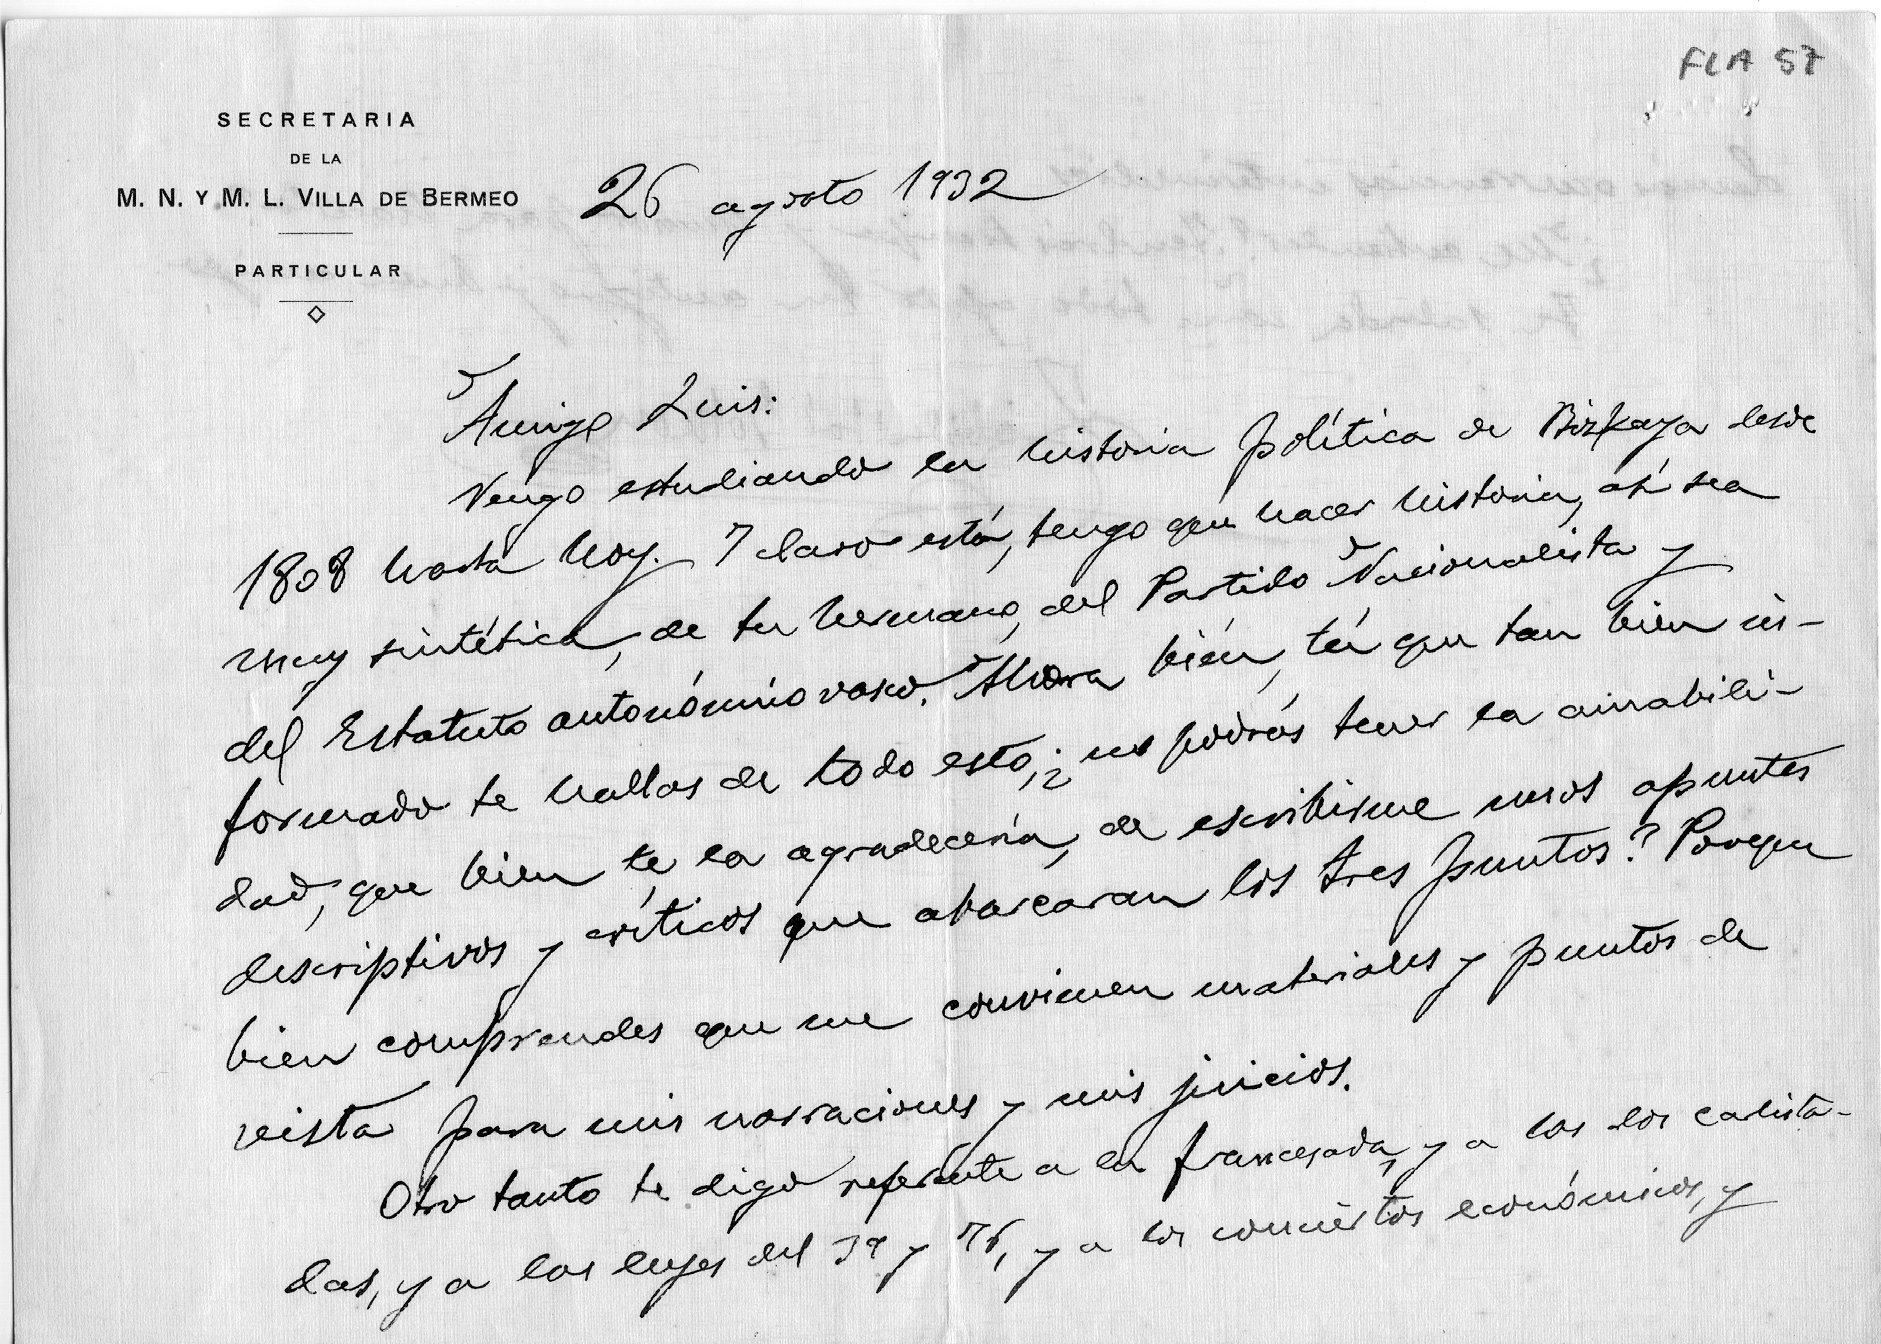 FLA 57
SECRETARIA
DE LA
M. N. Y M. L. VILLA DE BERMEO
PARTICULAR
26 agosto 1932
Amigo Luis:
Vengo estudiando la historia política de Bizkaya desde
1808 hasta hoy. Y claro está, tengo que hacer historia, así sea
muy sintética, de tu hermano, del Partido Nacionalista y
del Estatuto autonómico vasco. Ahora bién, tú que tan bien in-
formado te hallas de todo esto, ¿no podrás tener la amabili-
dad, que bien te la agradecería, de escribirme unos apuntes
descriptivos y críticos que abarcaran los tres puntos? Porque
bien comprendes que me convienen materiales y puntos de
vista para mis narraciones y mis juicios.
Otro tanto te digo referente a la francesada, y a las dos carlista-
das, y a las leyes del 39 y 76, y a los conciertos económicos, y